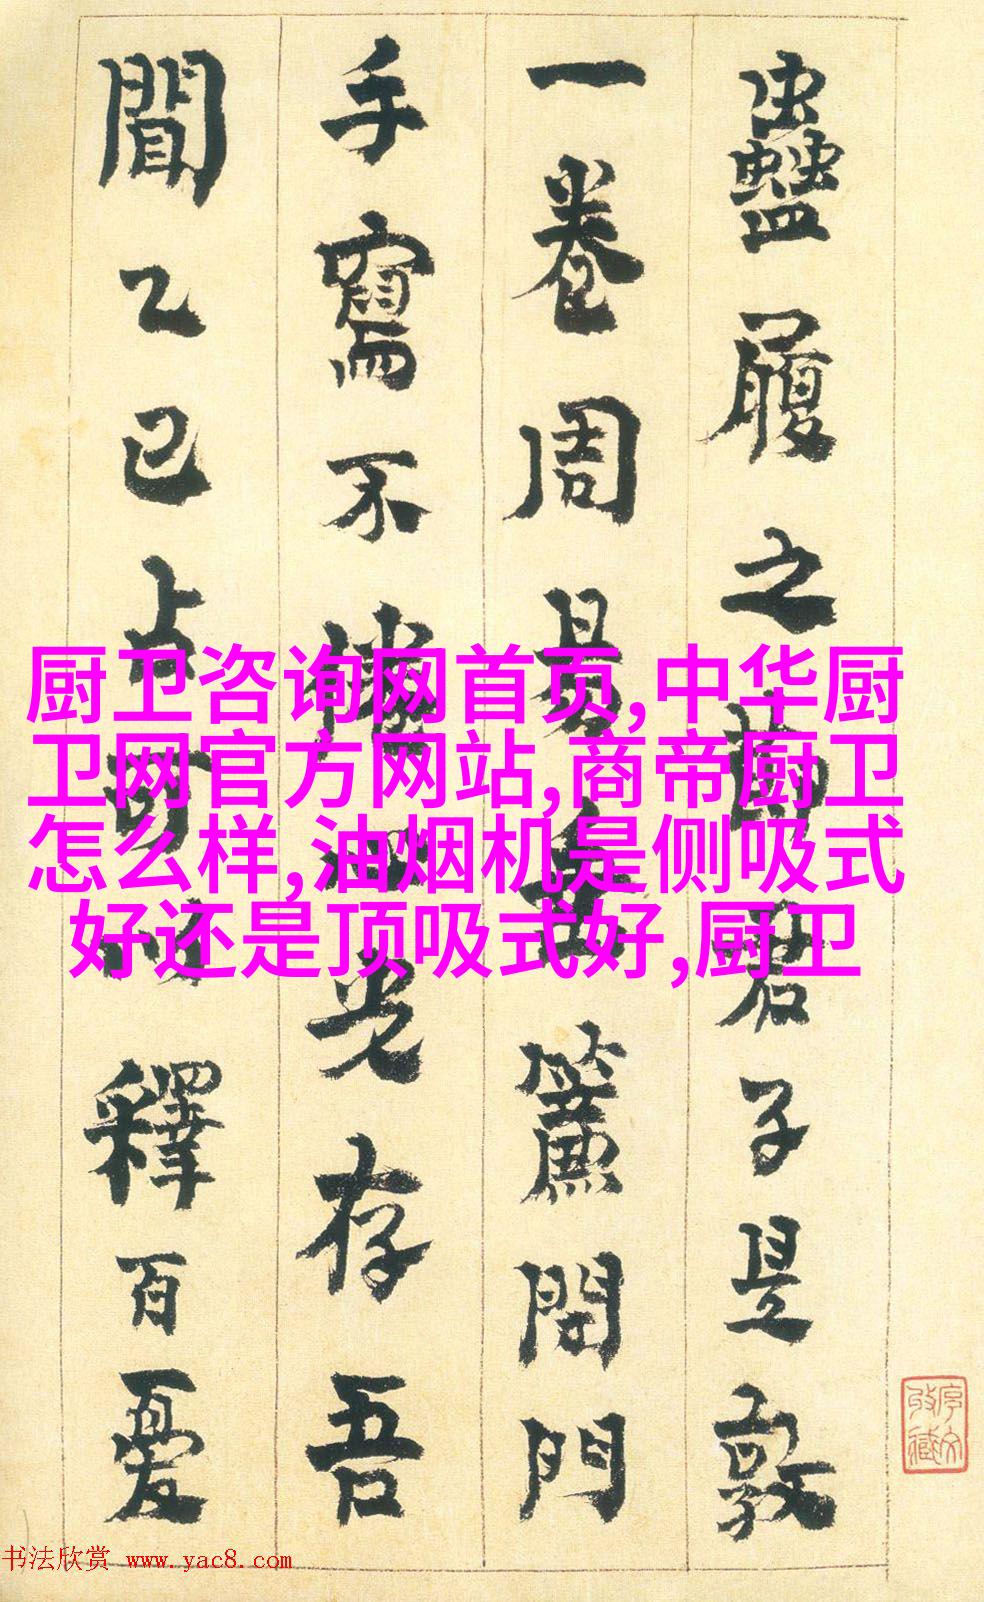 蠱履之君子是敦
一卷周易簾閉門
手寫不存吾
聞乙巳占可以釋百憂
厨卫咨询网首页,中华厨
卫网官方网站,商帝厨卫
怎么样,油烟机是侧吸式
好还是顶吸式好,厨卫
书法欣赏 www.yac8.com